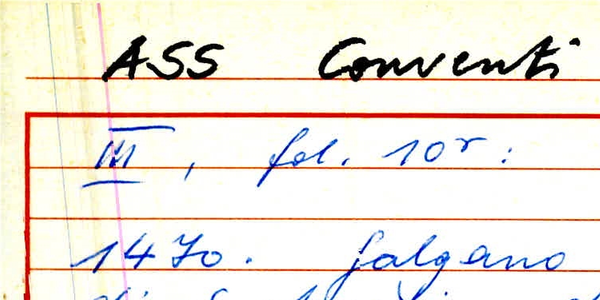 ASS Conventi
III, fol. 10r:
1470. Galgano